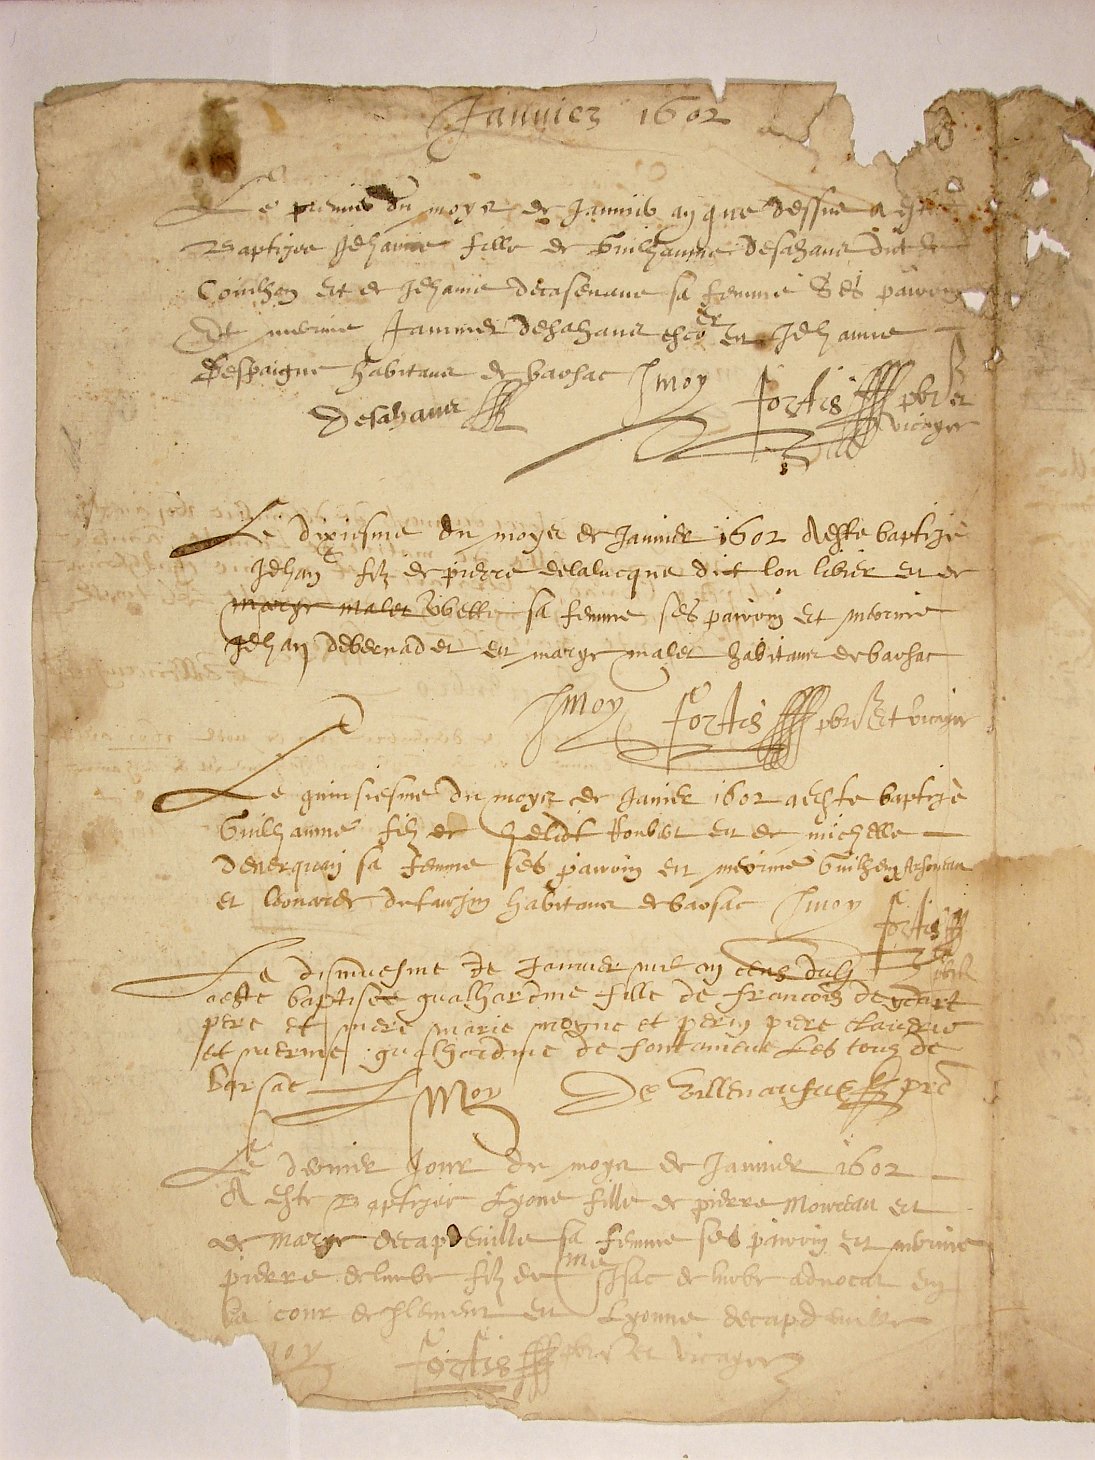 Januier 1602
Le premier du moys de Januier an que dessus a este
Baptisee Jehanne fille de Guilhaume desahaus dict de
Couilhon et de Jehanne decasenaue sa femme Ses pairin
Et merine Jammes desahaus escer et Jehanne
Despaigne habitans de barsac Pnt moy fortis pbre et
Desahaus vicaire
Le dixiesme du moys de Januier 1602 A este baptize
Jehan filz de pierre delalucque dict lou libier et de
marge males sa femme ses pairin et merine
Jehan debernadet et marge males habitans de barsac
Pnt moy fortis pbre et vicaire
Le quinsiesme du moys de Janier 1602 a este baptize
Guilhaume filz de helict et de michelle
sa femme ses pairin et merine Guilhem
et leonarde habitans de barsac Pnt moy fortis
Le disnuesme de Januier mil an
a este baptisee gualhardine fille de francois de
pere et mere marie mogne et perin pere
et merine gualhardine de fontaneue les tous de
barsac Pnt Moy De Villenaufue pre
Le dernier Jour du moys de Januier 1602
A este Baptizee Lyone fille de pierre Moureau et
de marge decapdeuille sa femme ses pairin et merine
pierre delurbe filz de me Isac delurbe aduocat en
la cour de et Lyonne decapdeuille
moy fortis pbre et vicaire